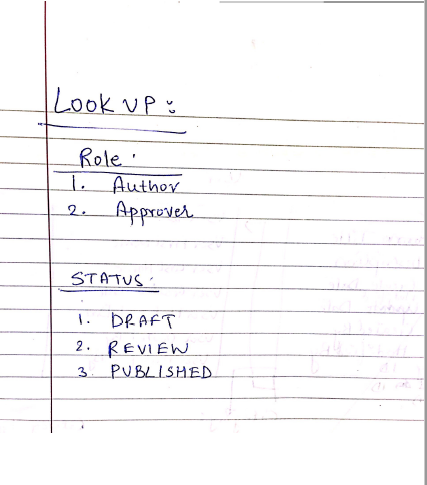 LOOK UP :
Role :
1. Author
2. Approver
STATUS :
1. DRAFT
2. REVIEW
3. PUBLISHED